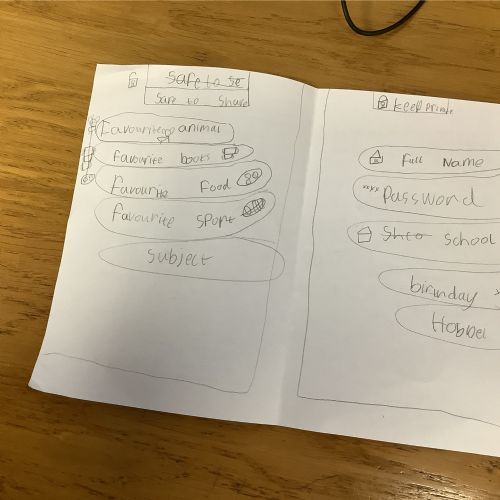 Safe to se
Safe to share
Favourite animal
favourite books
Favourite Food
favourite sport
subject
keep private
Full Name
**** Password
Shco school
birthday *
Hobbei